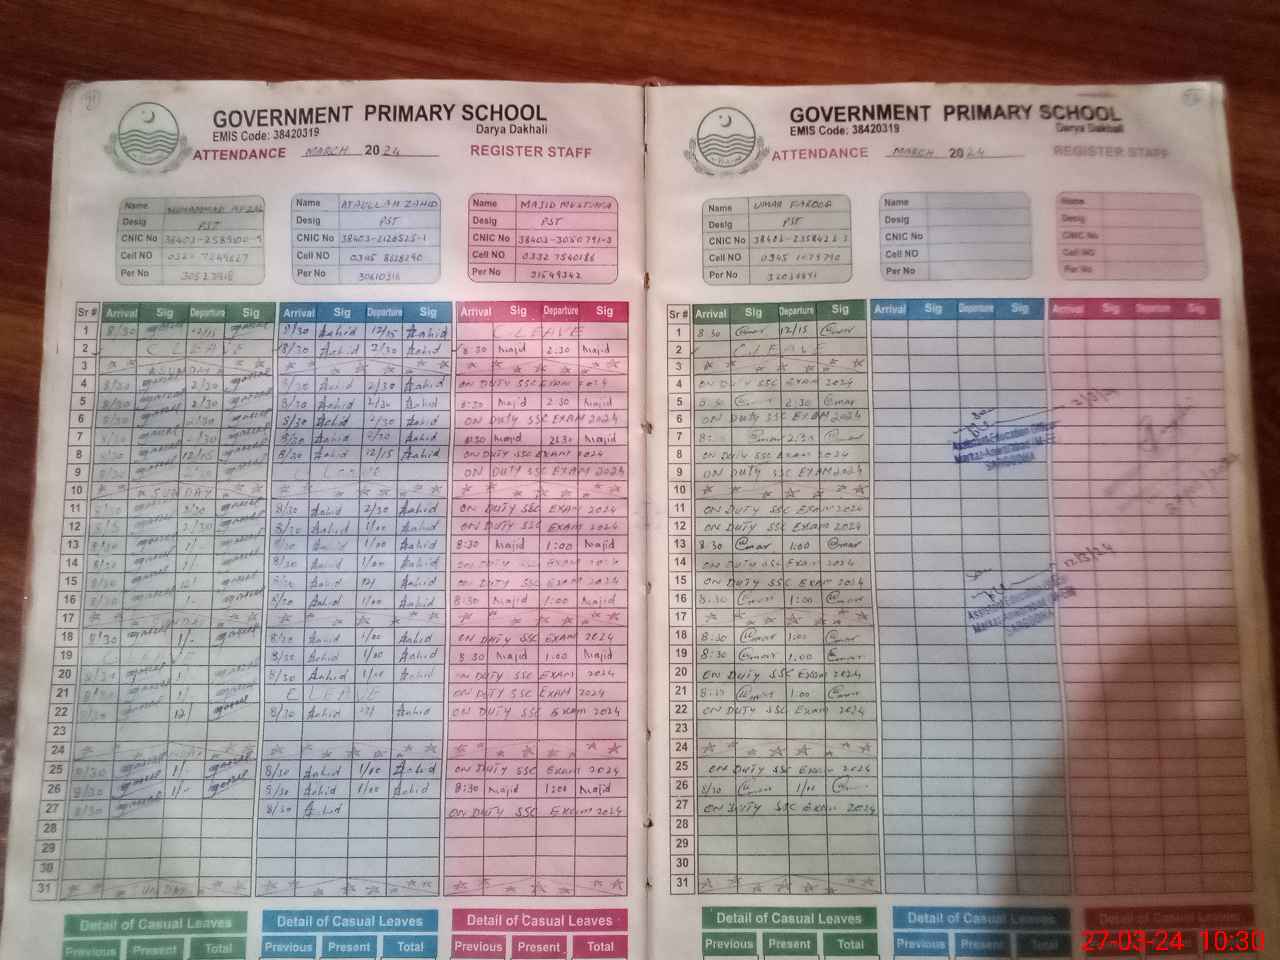 GOVERNMENT PRIMARY SCHOOL
EMIS Code: 38420319 Darya Dakhali
ATTENDANCE MARCH 2024 REGISTER STAFF
Name MUHAMMAD AFZAL
Desig PST
CNIC No
Cell NO
Per No
Name ATAULLAH ZAHID
Desig PST
CNIC No
Cell NO 0345 8628290
Per No 30610316
Name MAJID MUSTAFA
Desig PST
CNIC No 38403-3050791-3
Cell NO 0332 7540186
Per No 31549342
Sr # Arrival Sig Departure Sig Arrival Sig Departure Sig Arrival Sig Departure Sig
1 8/30 12/15 8/30 Zahid 12/15 Zahid C LEAVE
2 C LEAVE 8/30 Zahid 2/30 Zahid 8:30 Majid 2:30 Majid
3 SUNDAY
4 8/30 2/30 8/30 Zahid 2/30 Zahid ON DUTY SSC EXAM 2024
5 8/30 2/30 8/30 Zahid 2/30 Zahid 8:30 Majid 2:30 Majid
6 8/30 8/30 Zahid 2/30 Zahid ON DUTY SSC EXAM 2024
7 8/30 8/30 Zahid 2/30 Zahid 8:30 Majid 2:30 Majid
8 8/30 12/15 8/30 Zahid 12/15 Zahid ON DUTY SSC EXAM 2024
9 C LEAVE ON DUTY SSC EXAM 2024
10 SUNDAY
11 8/30 2/30 8/30 Zahid 2/30 Zahid ON DUTY SSC EXAM 2024
12 8/30 Zahid 1/00 Zahid ON DUTY SSC EXAM 2024
13 8/30 1/- 8/30 Zahid 1/00 Zahid 8:30 Majid 1:00 Majid
14 8/30 1/- 8/30 Zahid 1/00 Zahid ON DUTY SSC EXAM 2024
15 8/30 12/ 8/30 Zahid 12/ Zahid ON DUTY SSC EXAM 2024
16 8/30 8/30 Zahid 1/00 Zahid 8:30 Majid 1:00 Majid
17 SUNDAY
18 8/30 1/- 8/30 Zahid 1/00 Zahid ON DUTY SSC EXAM 2024
19 C LEAVE 8/30 Zahid 1/00 Zahid 8:30 Majid 1:00 Majid
20 8/30 1/- 8/30 Zahid 1/00 Zahid ON DUTY SSC EXAM 2024
21 8/30 1/- C LEAVE ON DUTY SSC EXAM 2024
22 8/30 12/ 8/30 Zahid 12/ Zahid ON DUTY SSC EXAM 2024
23
24 SUNDAY
25 8/30 1/- 8/30 Zahid 1/00 Zahid ON DUTY SSC EXAM 2024
26 8/30 1/- 8/30 Zahid 1/00 Zahid 8:30 Majid 1:00 Majid
27 8/30 8/30 Zahid ON DUTY SSC EXAM 2024
28
29
30
31 SUNDAY
Detail of Casual Leaves Detail of Casual Leaves Detail of Casual Leaves
Previous Present Total Previous Present Total Previous Present Total
GOVERNMENT PRIMARY SCHOOL
EMIS Code: 38420319 Darya Dakhali
ATTENDANCE MARCH 2024 REGISTER STAFF
Name UMAR FAROOQ
Desig PST
CNIC No
Cell NO
Per No
Name
Desig
CNIC No
Cell NO
Per No
Name
Desig
CNIC No
Cell No
Per No
Sr # Arrival Sig Departure Sig Arrival Sig Departure Sig Arrival Sig Departure Sig
1 8:30 @mar 12/15 @mar
2 C LEAVE
3
4 ON DUTY SSC EXAM 2024
5 8:30 2:30 @mar
6 ON DUTY SSC EXAM 2024
7 @mar 2/30 @mar
8 ON DUTY SSC EXAM 2024
9 ON DUTY SSC EXAM 2024
10
11 ON DUTY SSC EXAM 2024
12 ON DUTY SSC EXAM 2024
13 8:30 @mar 1:00 @mar
14 ON DUTY SSC EXAM 2024
15 ON DUTY SSC EXAM 2024
16 8:30 @mar 1:00 @mar
17
18 8:30 @mar 1:00 @mar
19 8:30 @mar 1:00 @mar
20 ON DUTY SSC EXAM 2024
21 @mar 1:00 @mar
22 ON DUTY SSC EXAM 2024
23
24
25 ON DUTY SSC EXAM 2024
26 8/30 @mar 1/00
27 ON DUTY SSC EXAM 2024
28
29
30
31
Assistant Education Officer
SARGODHA
Assistant Education
SARGODHA
Detail of Casual Leaves Detail of Casual Leaves Detail of Casual Leaves
Previous Present Total Previous Present Total Previous Present Total
27-03-24 10:30